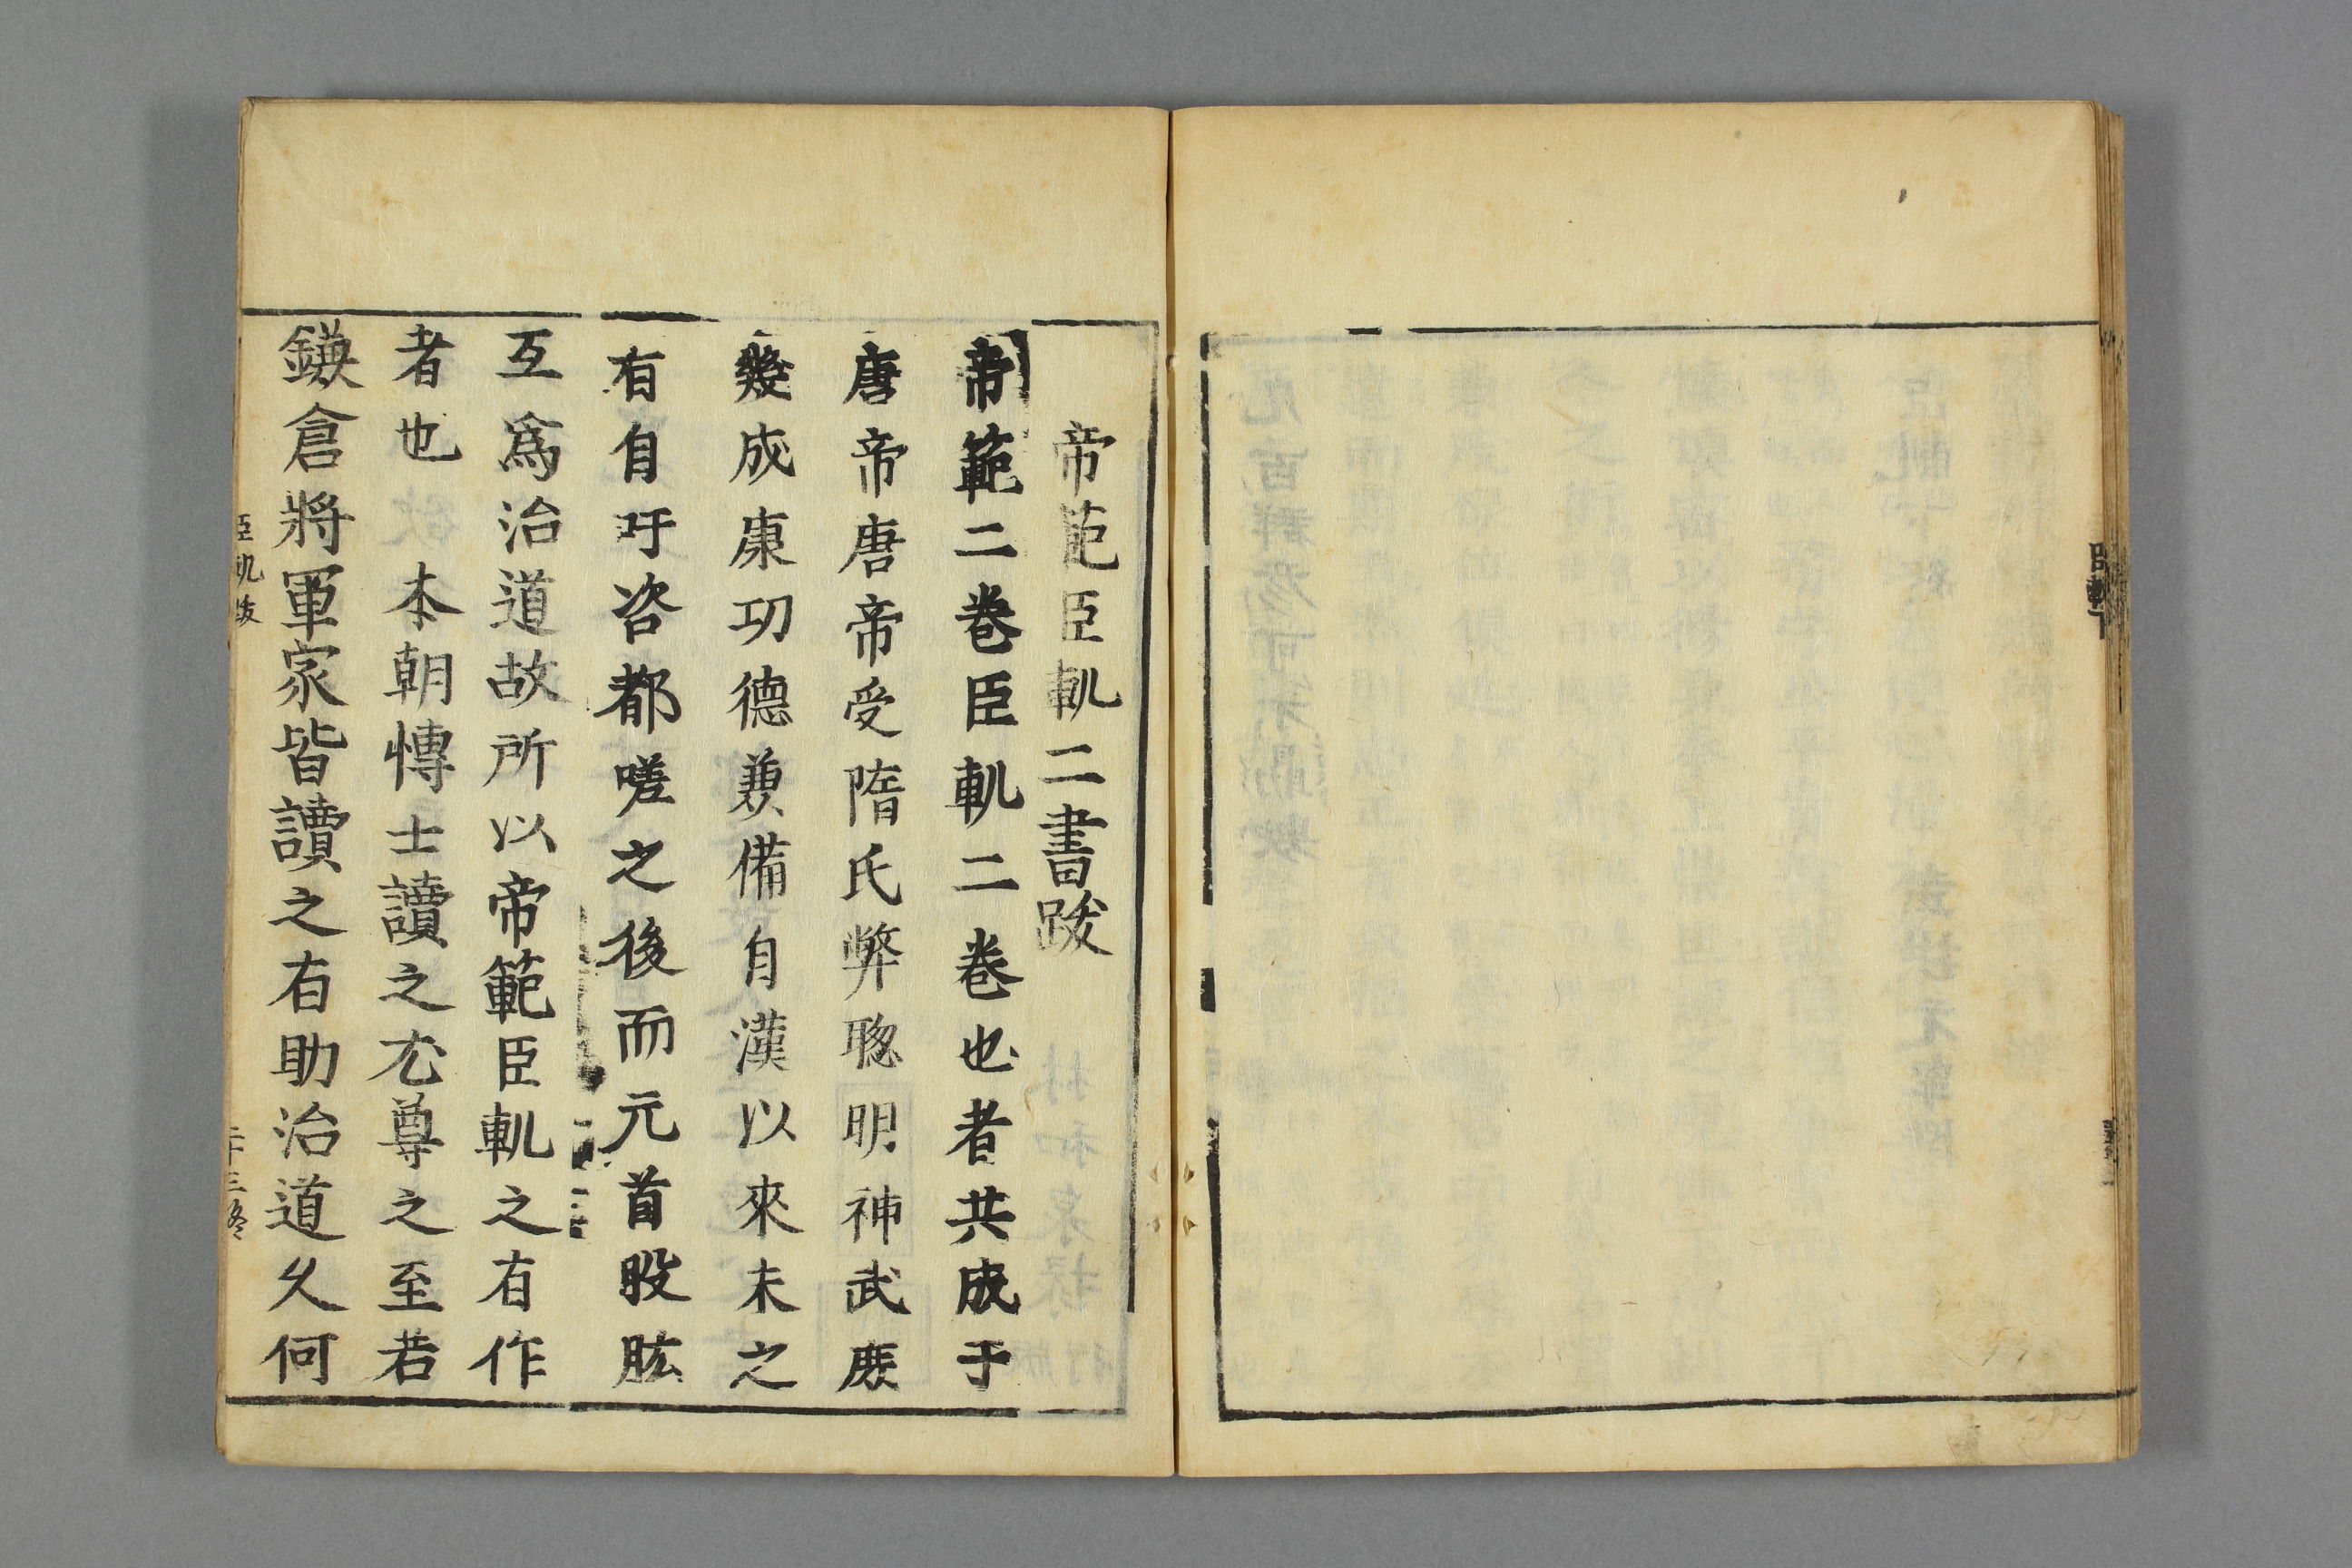 帝範臣軌二書跋
帝範二卷臣軌二卷也者共成于
唐帝唐帝受隋氏弊聰明神武庶
幾成康功德兼備自漢以來未之
有自吁咨都嗟之後而元首股肱
互爲治道故所以帝範臣軌之有作
者也　本朝博士讀之尤尊之至若
鎌倉將軍家皆讀之有助治道久何
臣軌跋
二十三終